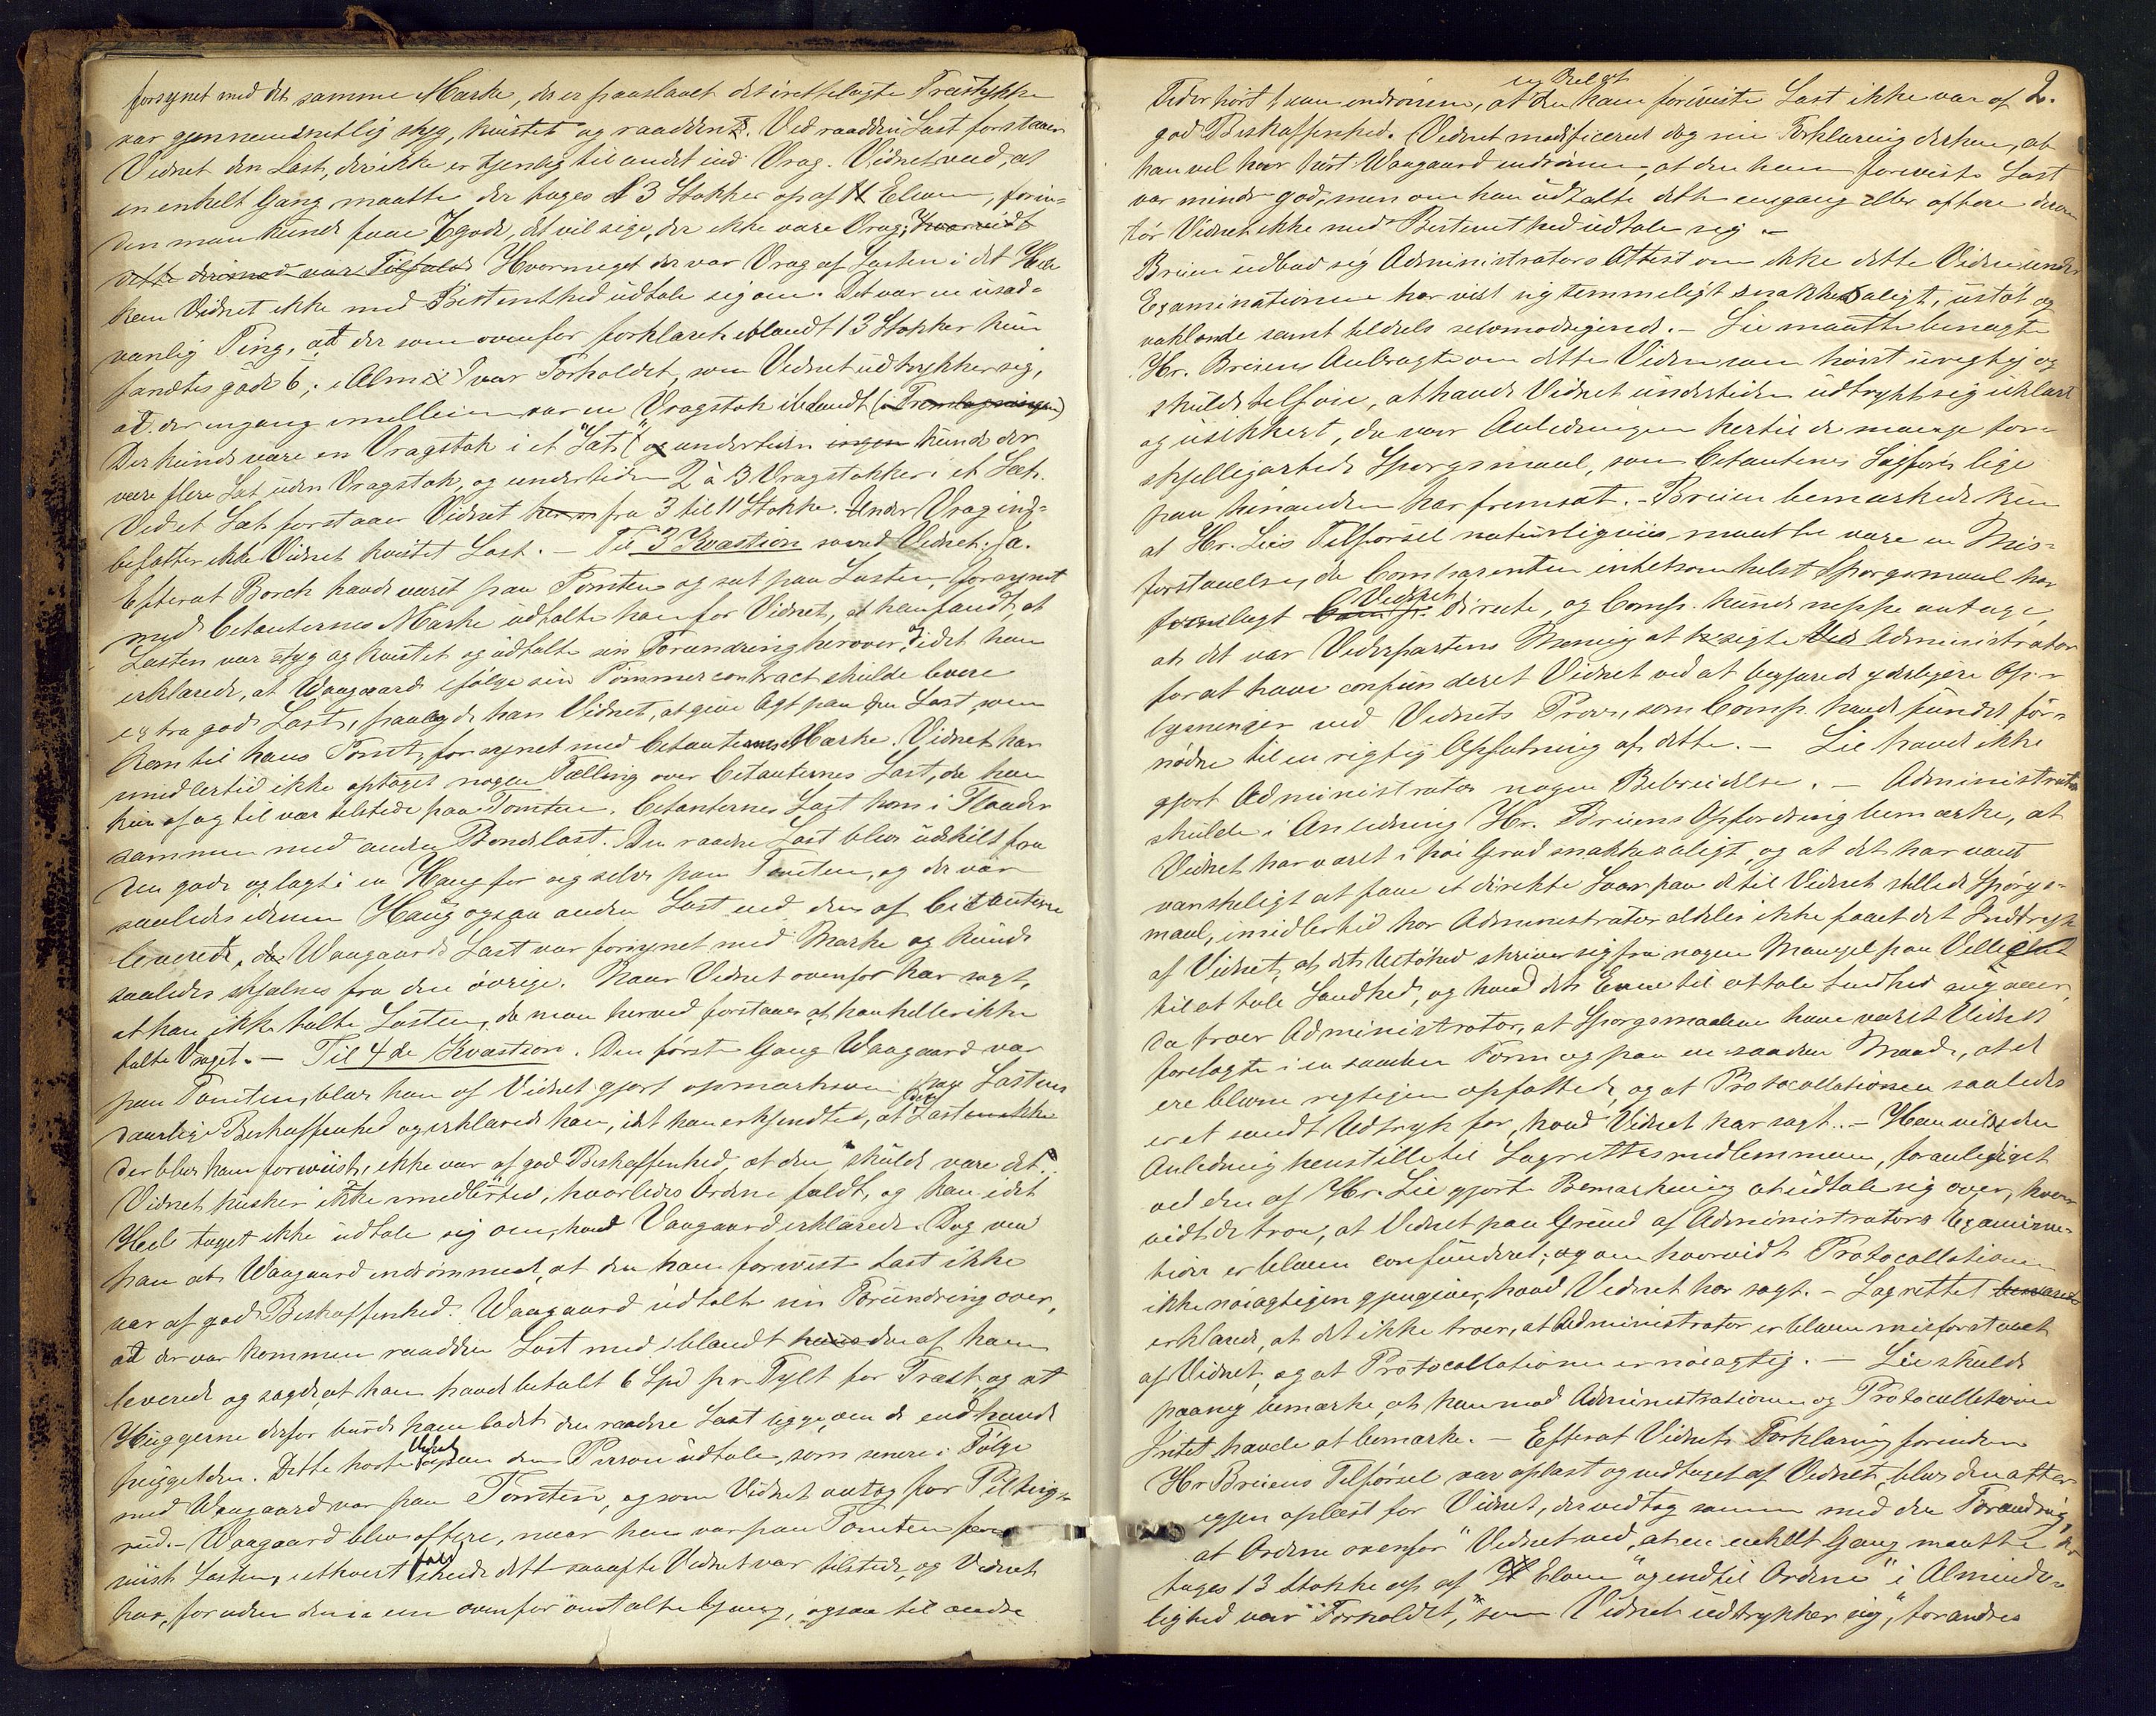 forsynet med det samme Mærke, der er paaslaaet det iretteslagte Træstykke
var gjennemsnitlig styg, kvistet og raadden. Ved raadden Last forstaaer
Vidnet den Last, der ikke er tjenlig til andet end Vrag. Vidnet veed, at
en enkelt Gang maatte der tages 13 Stokker op af Elven, forin-
den man kunde faae 6 gode, det vil sige, der ikke vare Vrag; hvorvidt
dette derimod var Tilfælde Hvormeget der var Vrag af Lasten i det Hele
kan Vidnet ikke med Bestemthed udtale sig om. Det var en usæd-
vanlig Ting, at der som ovenfor forklaret iblandt 13 Stokker kun
fandtes gode 6; i Alm. var Forholdet, som Vidnet udtrykker sig,
at der engang mellem var en Vragstok iblandt
Der kunde være en Vragstok i et "Lat" og undertiden ingen kunde der
være flere Lat uden Vragstok, og undertiden 2 à 3 Vragstokker i et Lat.
Ved et Lat forstaaer Vidnet fra 3 til 11 Stokke. Under Vrag ind-
befatter ikke Vidnet kvistet Last. – Til 3 Kvæstion svared Vidnet: ja.
Efterat Borch havde været paa Tomten og set paa Lasten, forsynet
med Citanternes Mærke udtalte han for Vidnet, at han fandt, at
Lasten var styg og kvistet og udtalte sin Forundring herover, idet han
erklærede, at Waagaard ifølge sin Tømmercontract skulde levere
extra god Last, paalagde han Vidnet, at give Agt paa den Last, som
kom til hans Tomt, forsynet med Citanternes Mærke. Vidnet har
imidlertid ikke optaget nogen Tælling over Citanternes Last, da han
kun af og til var tilstede paa Tomten. Citanternes Last kom i Flaader
sammen med anden Bondelast. Den raadne Last blev udskilt fra
den gode og lagt i en Haug for sig selv paa Tomten, og der var
saaledes i denne Haug ogsaa anden Last end den af Citanterne
leverede, da Waagaards Last var forsynet med Mærke og kunde
saaledes skjelnes fra den øvrige. Naar Vidnet ovenfor har sagt,
at han ikke talte Lasten, da maa herved forstaaes, at han heller ikke
talte Vraget. – Til 4de Kvæstion. Den første Gang Waagaard var
paa Tomten, blev han af Vidnet gjort opmærksom paa Lastens
daarlige Beskaffenhed og erklærede han, idet han erkjendte, at den Last
der blev ham foreviist, ikke var af god Beskaffenhed, at den "skulde være det".
Vidnet husker ikke imidlertid, hvorledes Ordene faldt, og kan i det
Hele taget ikke udtale sig om, hvad Vaagaard erklærede. Dog veed
han at Waagaard indrømmed, at den ham foreviste Last ikke
var af god Beskaffenhed. Waagaard udtalte sin Forundring over,
at der var kommen raadden Last med iblandt den af ham
leverede og sagde, at han havde betalt 6 Spd pr. Tylt for Træet, og at
Huggerne derfor burde have ladet den raadne Last ligge, om de end havde
hugget den. Dette hørte Vidnet ogsaa den Person udtale, som senere i Følge
med Waagaard var paa Tomten, og som Vidnet antog for Pilting-
rud. – Waagaard blev oftere, naar han var paa Tomten fore-
viist Lasten, i ethvert fald skede dette saaofte Vidnet var tilstede, og Vidnet
har, foruden denne ene ovenfor omtalte Gang, ogsaa til andre
2.
Tider hørt ham indrømme, at den ham foreviste Last ikke var af
god Beskaffenhed. Vidnet modificeret dog sin Forklaring derhen, at
han vel har hørt Waagaard indrømme, at den ham foreviste Last
var mindre god, men om han udtalte dette engang eller oftere derom
tør Vidnet ikke med Bestemthed udtale sig. –
Breien udbad sig Administrators Attest om ikke dette Vidne under
Examinationen har vist sig temmeligt snakkesaligt, ustøt og
vaklende samt tildels selvmodsigende. – Lie maatte benægte
Hr. Breiens Andragte om dette Vidne som høist urigtig og
skulde tilføie, at havde Vidnet undertiden udtrykt sig uklart
og usikkert, da var Anledningen hertil de mange for-
skjelligartede Spørgsmaal, som Citantenes Sagfører lige
paa hinanden har fremsat. – Breien bemærkede kun
at Hr. Lies Tilførsel naturligviis maatte være en Mis-
forstaaelse, da Comparenten intetsomhelst Spørgsmaal har
forelagt Vidnet directe, og Comp. kunde neppe antage,
at det var Vederpartens Mening at sigte Administrator
for at have confunderet Vidnet ved at begjærede yderligere Op-
lysninger ved Vidnets Prov, som Comp. havde fundet for-
nødne til en rigtig Opfatning af dette. – Lie havde ikke
gjort Administrator nogen Bebreidelse. – Administrator
skulde i Anledning Hr. Breiens Opfordring bemærke, at
Vidnet har været i høi Grad snakkesaligt, og at det har været
vanskeligt at faae et direkte Svar paa de til Vidnet stillede Spørgs-
maal, imidlertid har Administrator aldeles ikke faaet det Indtryk
af Vidnet, at dets Ustøhed skriver sig fra nogen Mangel paa Villie
til at tale Sandhed, og hvad dets Evne til at tale Sandhed angaaer,
da troer Administrator, at Spørgsmaalene have været Vidnet
forelagte i en saadan Form og paa en saadan Maade, at de
ere blevne rigtigen opfattede, og at Protocollationen saaledes
er et sandt Udtryk for, hvad Vidnet har sagt. – Han vilde i den
Anledning henstille til Lagrettesmedlemmerne, foranlediget
ved den af Hr. Lie gjorte Bemærkning at udtale sig over, hvor-
vidt de troe, at Vidnet paa Grund af Administrators Examina-
tion er bleven confunderet, og om hvorvidt Protocollationen
ikke nøiagtigen gjengiver, hvad Vidnet har sagt. – Lagrettet
erklærede, at det ikke troer, at Administrator er bleven misforstaaet
af Vidnet, og at Protocollationen er nøiagtig. – Lie skulde
paany bemærke, at han mod Administrationen og Protocollationen
Intet havde at bemærke. – Efterat Vidnets Forklaring forinden
Hr Breiens Tilførsel var oplæst og vedtaget af Vidnet, blev den atter
igjen oplæst for Vidnet, der vedtog samme med den Forandring,
at Ordene ovenfor "Vidnet ved, at en enkelt Gang maatte der
tages 13 Stokke op af Elven" og endtil Ordene "i Alminde-
lighed var "Forholdet," som Vidnet udtrykker sig", forandres